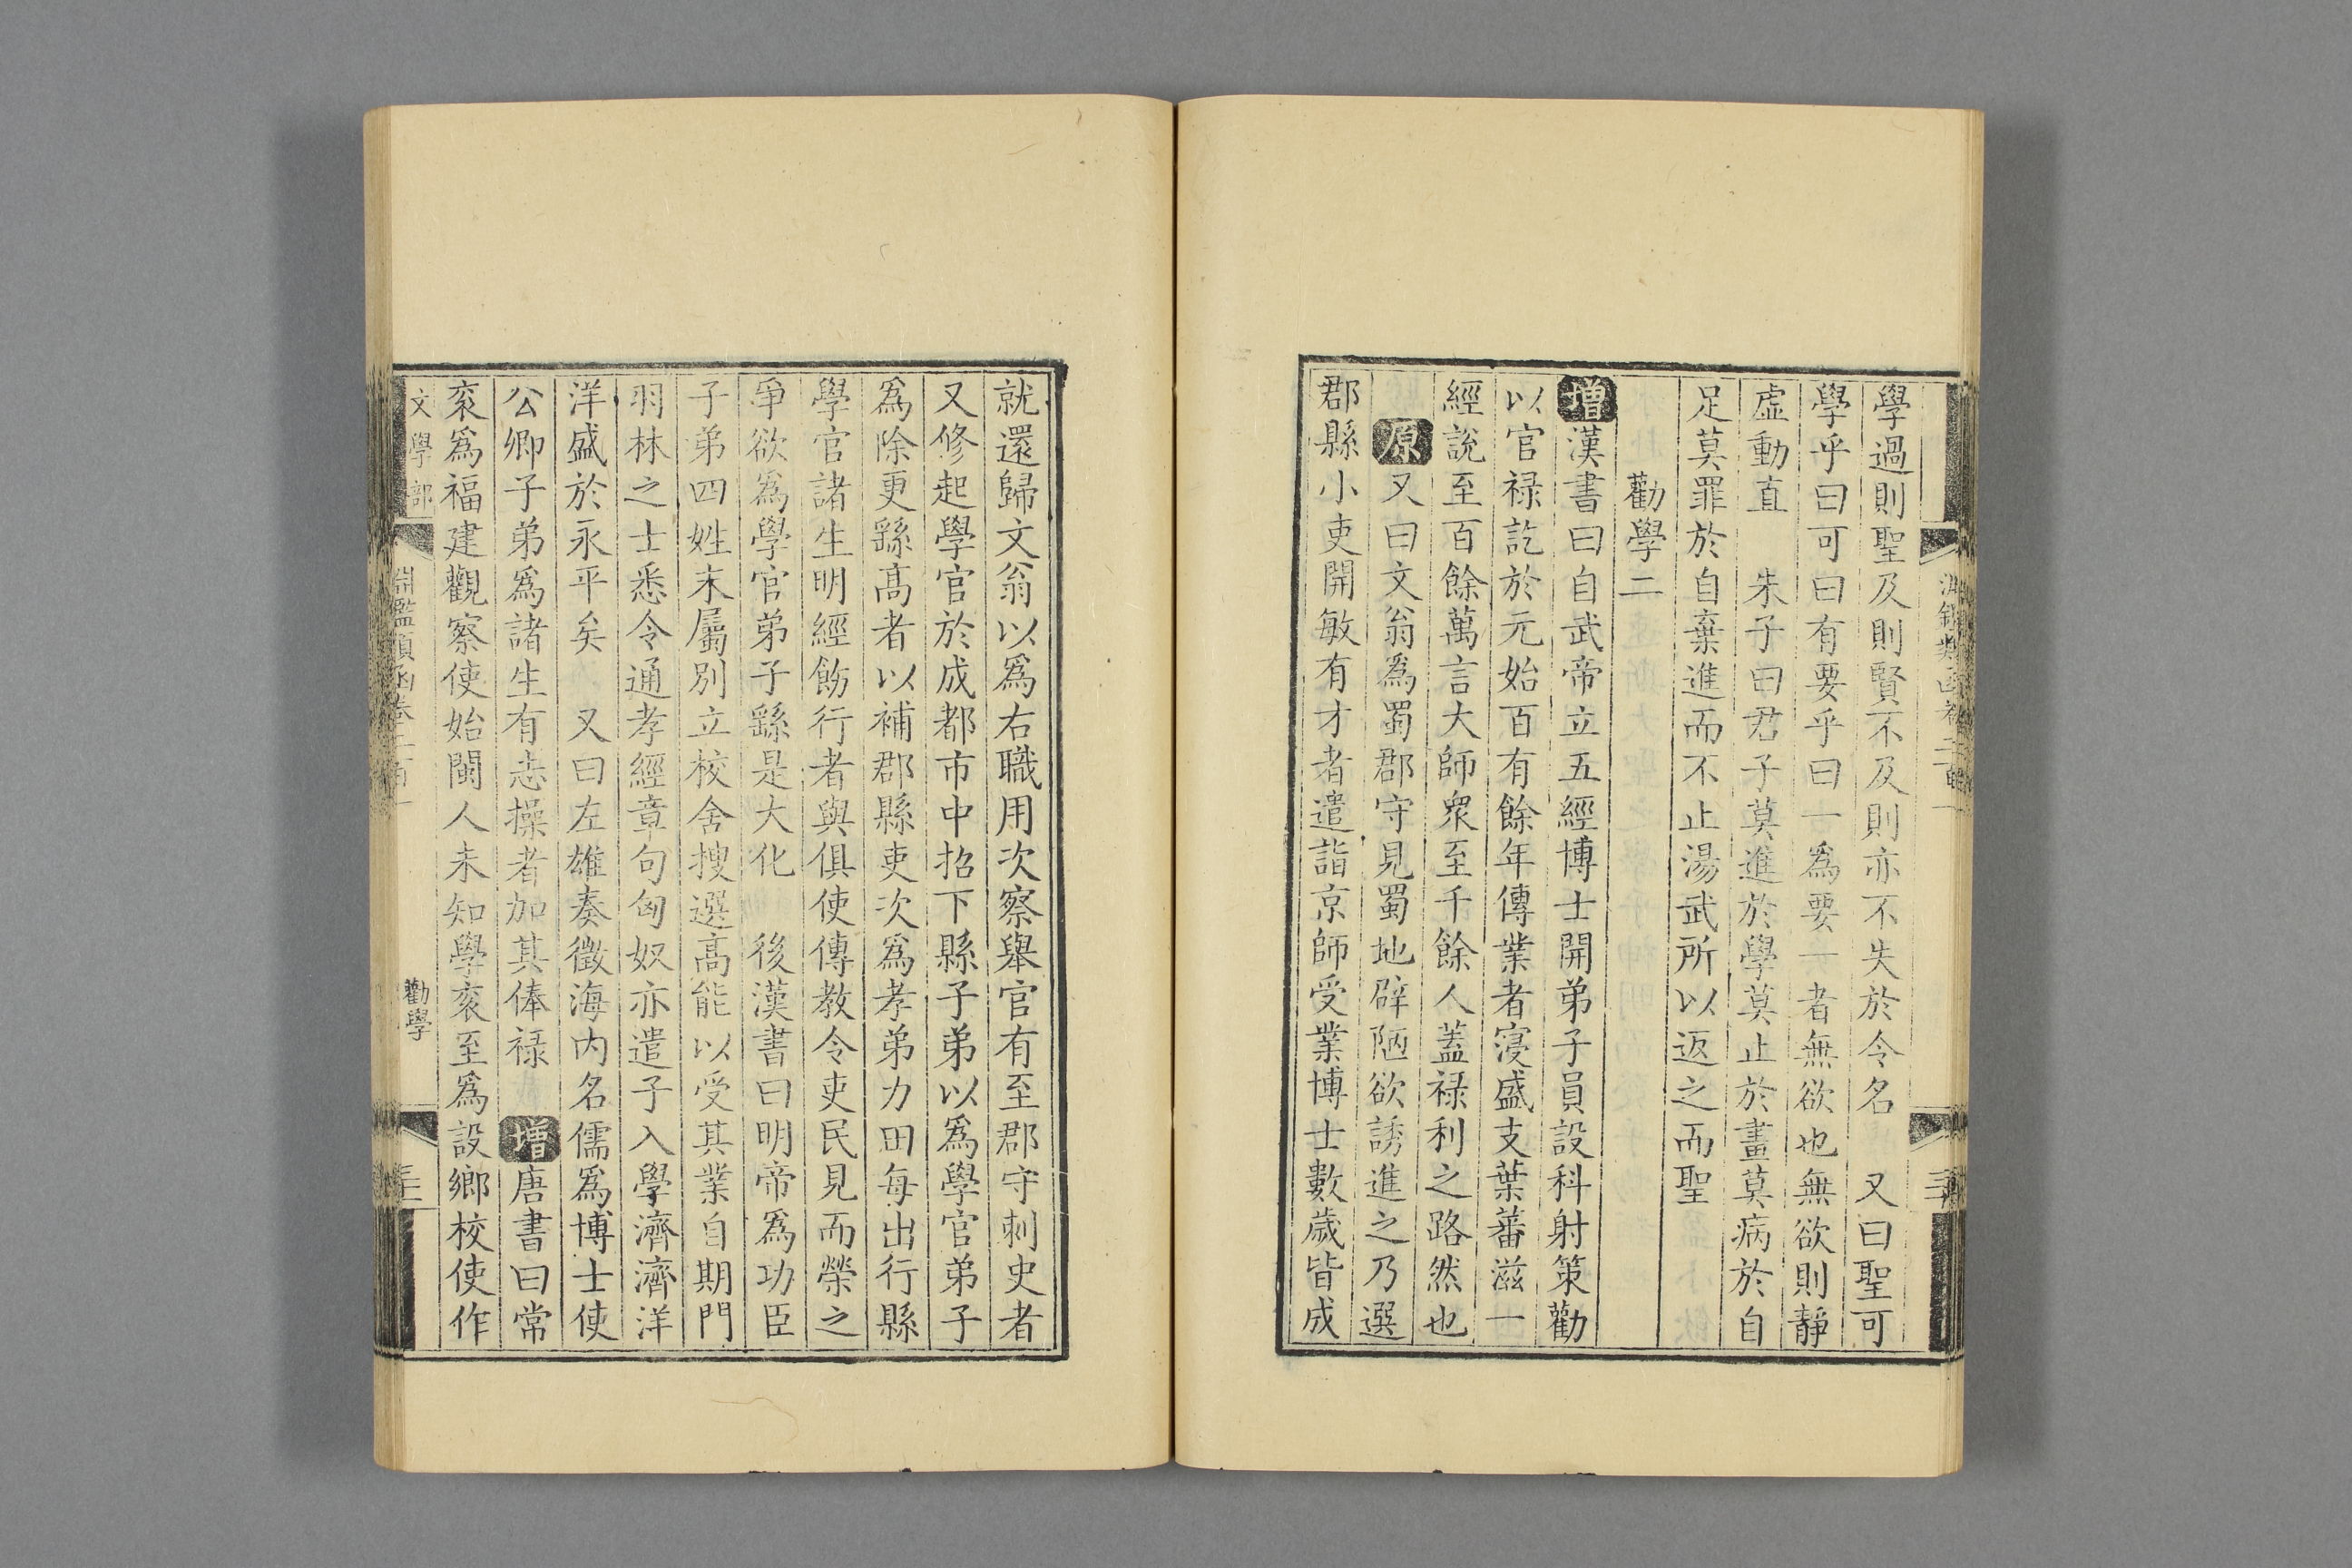 學過則聖及則賢不及則亦不失於令名　又曰聖可
學乎曰可曰有要乎曰一爲要一者無欲也無欲則靜
虛動直　朱子曰君子莫進於學莫止於畫莫病於自
足莫罪於自棄進而不止湯武所以返之而聖
勸學二
增漢書曰自武帝立五經博士開弟子員設科射策勸
以官祿訖於元始百有餘年傳業者寖盛支葉蕃滋一
經說至百餘萬言大師衆至千餘人蓋祿利之路然也
原又曰文翁爲蜀郡守見蜀地辟陋欲誘進之乃選
郡縣小吏開敏有才者遣詣京師受業博士數歲皆成
就還歸文翁以爲右職用次察舉官有至郡守刺史者
又修起學官於成都市中招下縣子弟以爲學官弟子
爲除更繇高者以補郡縣吏次爲孝弟力田每出行縣
學官諸生明經飭行者與俱使傳教令吏民見而榮之
爭欲爲學官弟子繇是大化　後漢書曰明帝爲功臣
子弟四姓末屬別立校舍搜選高能以受其業自期門
羽林之士悉令通孝經章句匈奴亦遣子入學濟濟洋
洋盛於永平矣　又曰左雄奏徵海内名儒爲博士使
公卿子弟爲諸生有志操者加其俸祿　增唐書曰常
衮爲福建觀察使始閩人未知學衮至爲設鄉校使作
文學部　淵鑑類函卷二百一　勸學